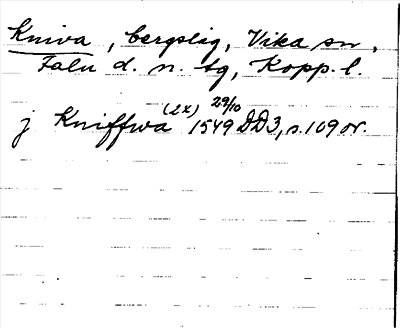 Kniva, bergslag, Vika sn,
Falu d. n. tg, Kopp. l.
j Kniffwa (2x) 29/10 1549 DD3, s. 109 or.